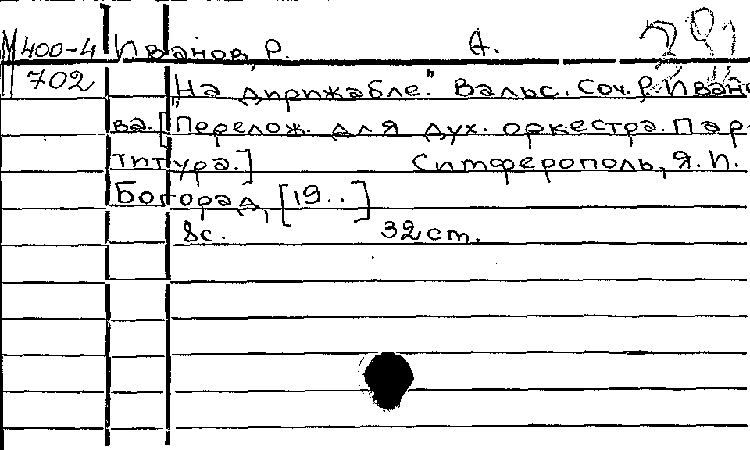 М 400-4 Иванов, Р. А. 291
702 "На дирижабле." Вальс. Соч. Р. Ивано
ва. [Перелож. для дух. оркестра. Пар-
титура.] Симферополь, Я. И.
Богорад, [19..]
8с. 32 cm.